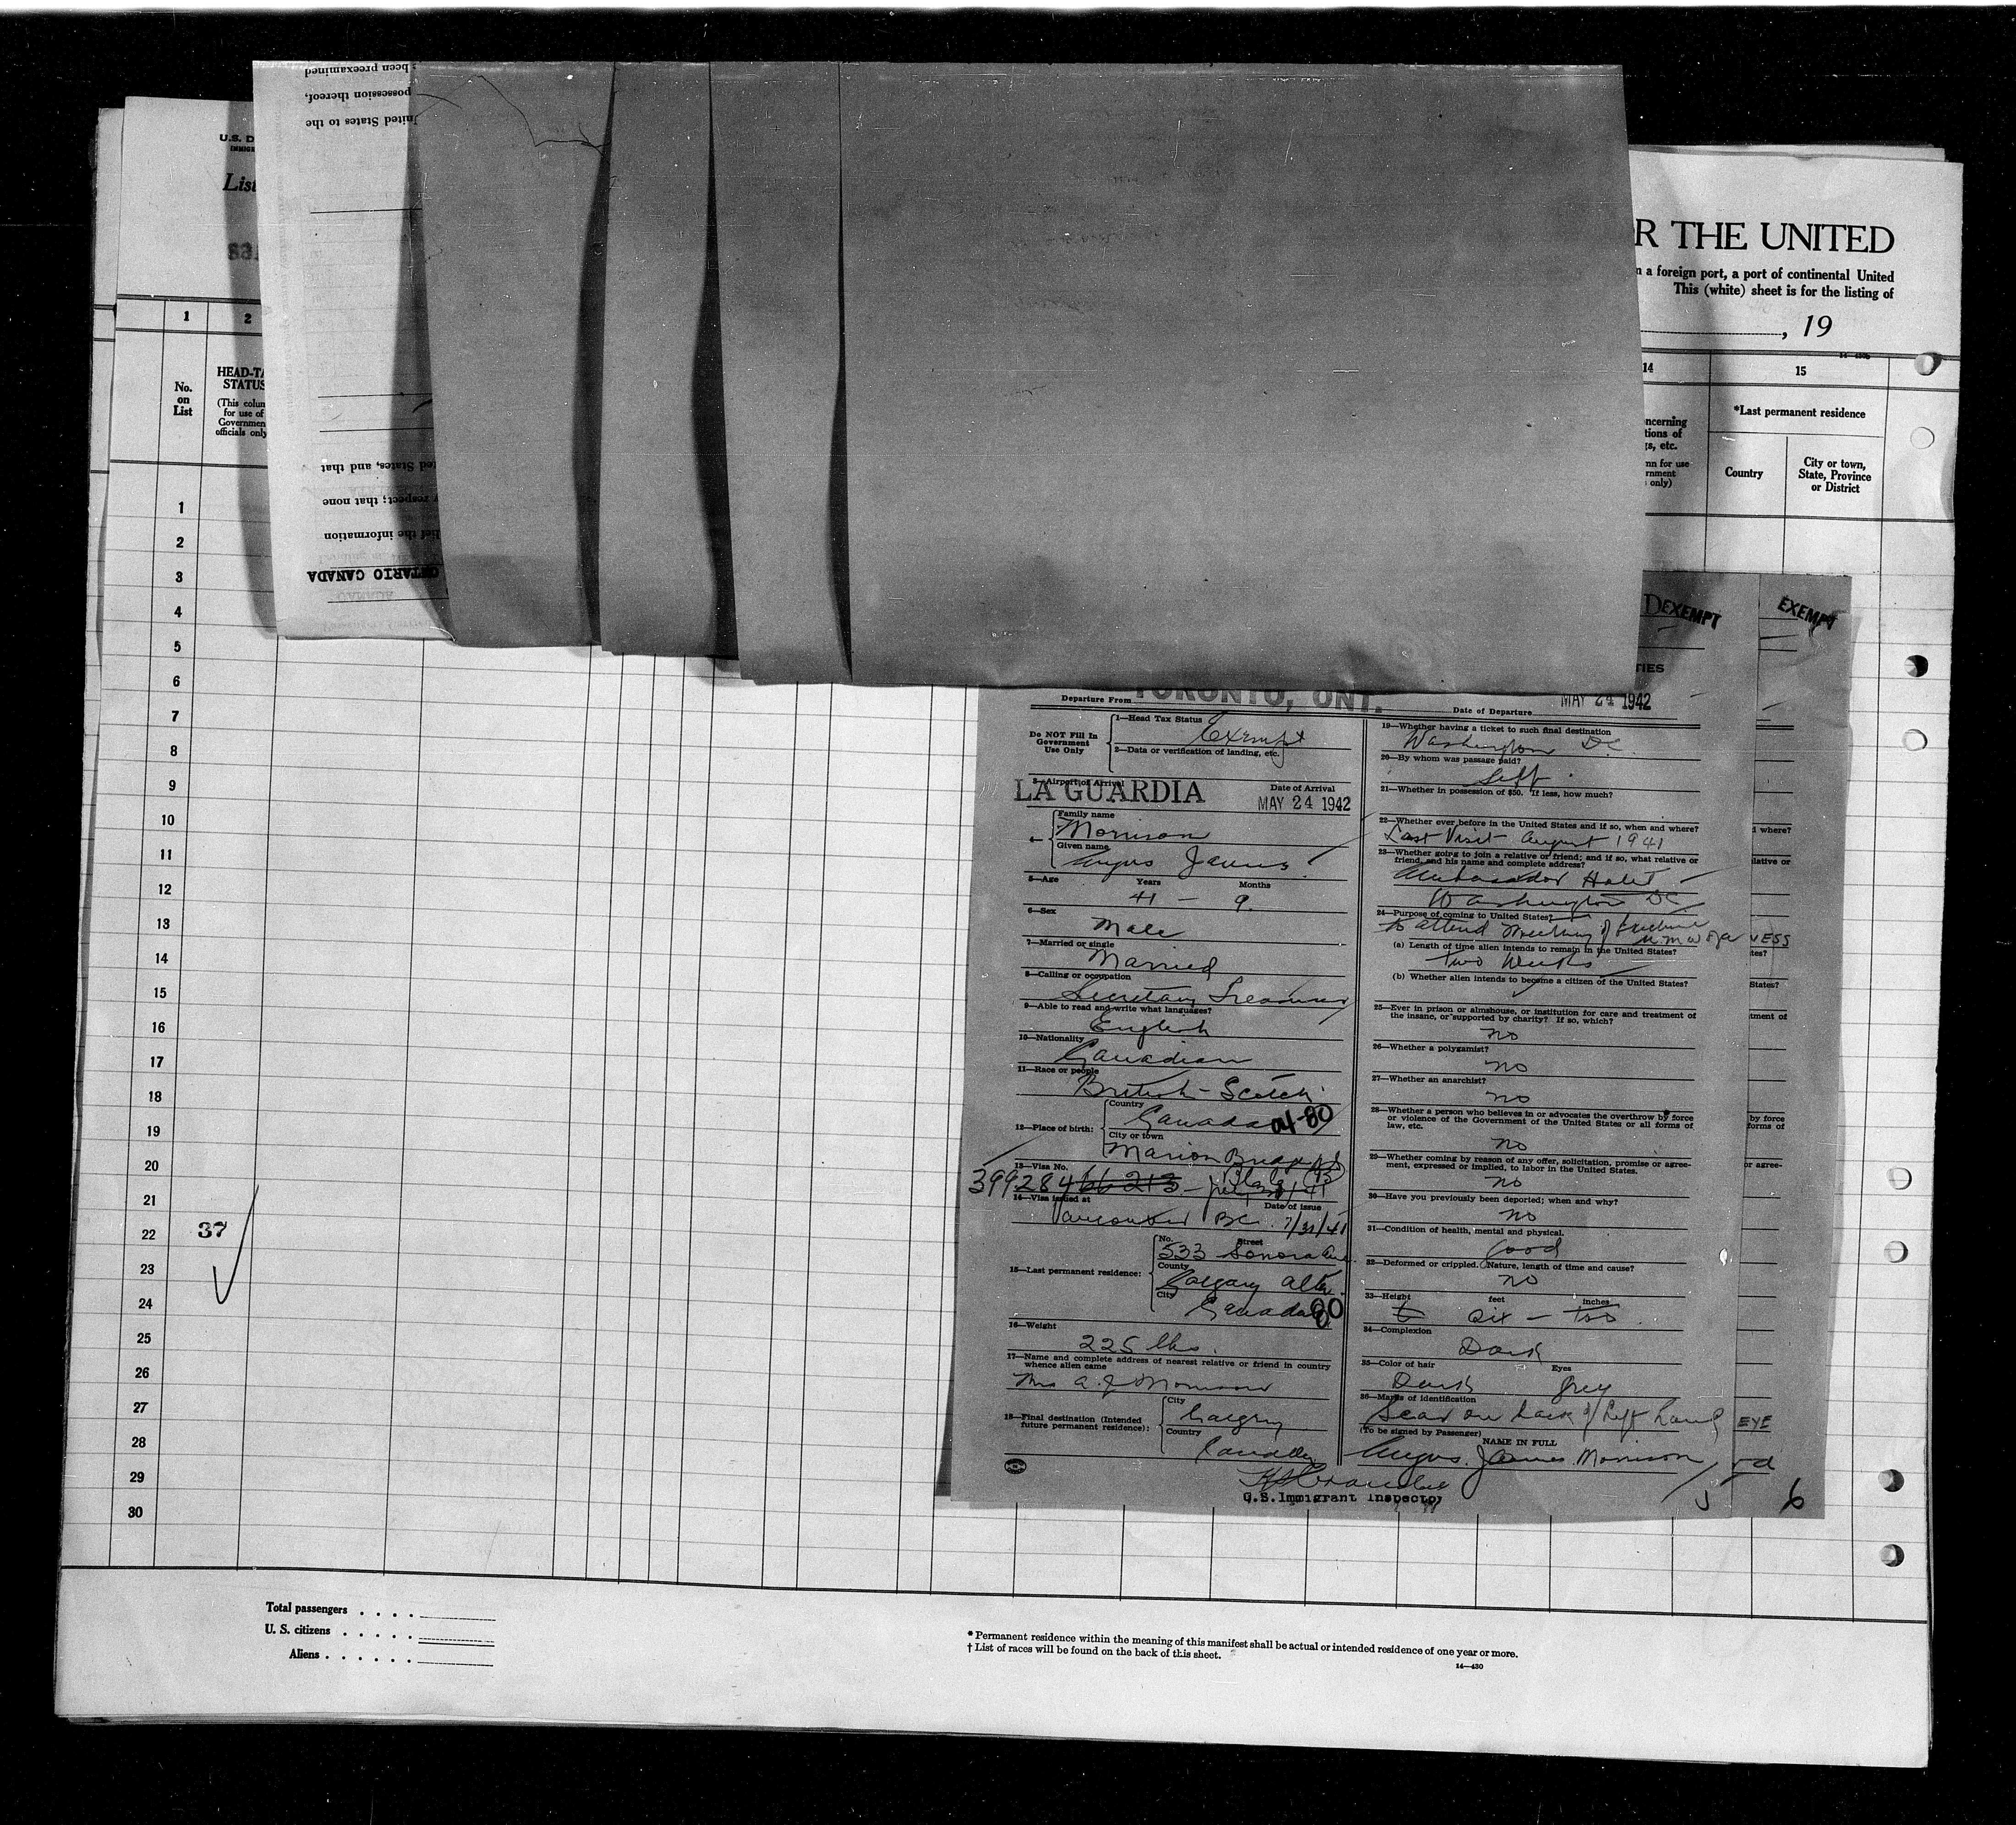 been preexamined
possession thereof,
United States to the
ted States, and that
respect; that none
lief the information
ONTARIO CANADA
U.S. D
List
R THE UNITED
n a foreign port, a port of continental United
This (white) sheet is for the listing of
, 19
1
2
14
15
No.
on
List
HEAD-TA
STATUS
(This colum
for use of
Governmen
officials only
ncerning
tions of
gs, etc.
mn for use
rnment
only)
*Last permanent residence
Country
City or town,
State, Province
or District
1
2
3
4
5
6
7
8
9
10
11
12
13
14
15
16
17
18
19
20
21
22
37
23
24
25
26
27
28
29
30
DEXEMPT
EXEMPT
TIES
Departure From TORONTO, ONT.
Date of Departure MAY 24 1942
Do NOT Fill In
Government
Use Only
1—Head Tax Status
Exempt
2—Data or verification of landing, etc.
3—Airport of Arrival
LA GUARDIA
Date of Arrival
MAY 24 1942
Family name
Morrison
Given name
Angus James
5—Age
Years
Months
41 - 9
6—Sex
Male
7—Married or single
Married
8—Calling or occupation
Secretary Treasurer
9—Able to read and write what languages?
English
10—Nationality
Canadian
11—Race or people
British - Scotch
12—Place of birth:
Country
Canada 04-80
City or town
Marion Bridge
13—Visa No.
399284 66213
14—Visa issued at
Date of issue
Vancouver BC. 7/31/41
15—Last permanent residence:
No.
Street
533 Sonora Ave
County
Calgary Alta.
City
Canada 80
16—Weight
225 lbs.
17—Name and complete address of nearest relative or friend in country
whence alien came
Mrs A. J Morrison
18—Final destination (Intended
future permanent residence):
City
Calgary
Country
Canada
U.S. Immigrant Inspector
19—Whether having a ticket to such final destination
Washington D.C.
20—By whom was passage paid?
Self
21—Whether in possession of $50. If less, how much?
22—Whether ever before in the United States and if so, when and where?
Last Visit August 1941
23—Whether going to join a relative or friend; and if so, what relative or
friend, and his name and complete address?
Ambassador Hotel
Washington DC.
24—Purpose of coming to United States?
to attend meeting of
(a) Length of time alien intends to remain in the United States?
two weeks
(b) Whether alien intends to become a citizen of the United States?
25—Ever in prison or almshouse, or institution for care and treatment of
the insane, or supported by charity? If so, which?
no
26—Whether a polygamist?
no
27—Whether an anarchist?
no
28—Whether a person who believes in or advocates the overthrow by force
or violence of the Government of the United States or all forms of
law, etc.
no
29—Whether coming by reason of any offer, solicitation, promise or agree-
ment, expressed or implied, to labor in the United States.
no
30—Have you previously been deported; when and why?
no
31—Condition of health, mental and physical.
Good
32—Deformed or crippled. Nature, length of time and cause?
no
33—Height
feet
inches
6 Six - two
34—Complexion
Dark
35—Color of hair
Eyes
Dark Grey
36—Marks of identification
Scar on back of left hand
(To be signed by Passenger)
NAME IN FULL
Angus James Morrison
5
d where?
lative or
NESS
tes?
States?
tment of
by force
forms of
or agree-
EYE
rd
6
Total passengers
U. S. citizens
Aliens
* Permanent residence within the meaning of this manifest shall be actual or intended residence of one year or more.
† List of races will be found on the back of this sheet.
14—430